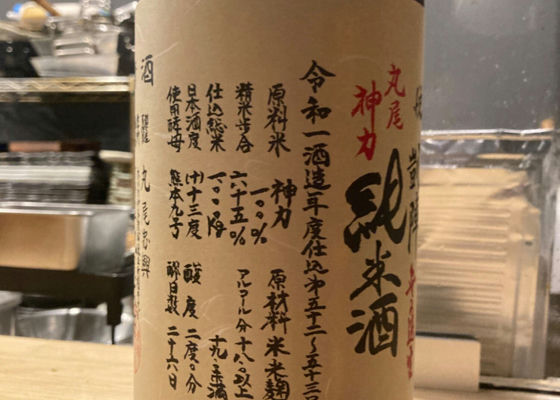 凱陣
純米酒
丸尾
神力
令和一酒造年度仕込第五十二〜五十三号
原料米 神力 一〇〇% 原材料米米麹
精米歩合 六十五% アルコール分十八以上十九.未満
仕込総米 一〇〇〇㎏
日本酒度 (+)十三度 酸度 二度〇分
使用酵母 熊本九号 醪日数 二十六日
酒
丸尾忠興